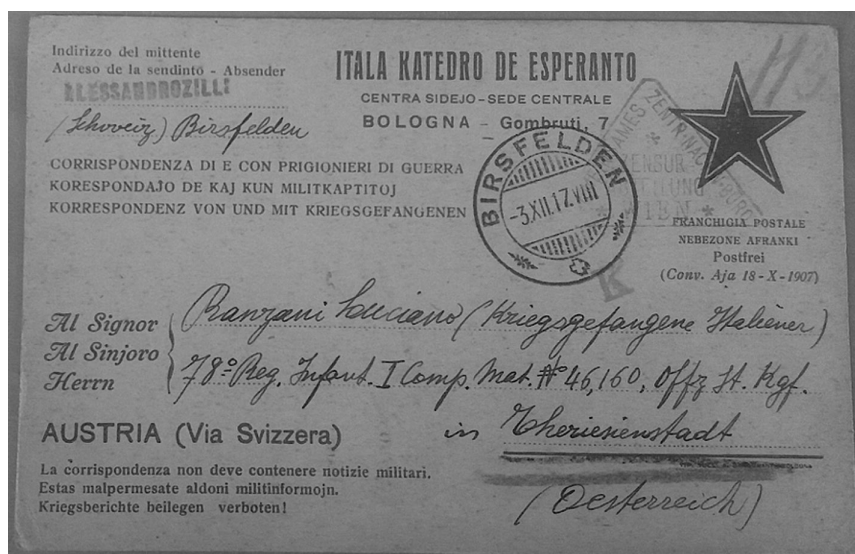 Indirizzo del mittente
Adreso de la sendinto - Absender
ALESSANDROZILLI
(Schweiz) Birsfelden
ITALA KATEDRO DE ESPERANTO
CENTRA SIDEJO-SEDE CENTRALE
BOLOGNA - Gombruti, 7
CORRISPONDENZA DI E CON PRIGIONIERI DI GUERRA
KORESPONDAJO DE KAJ KUN MILITKAPTITOJ
KORRESPONDENZ VON UND MIT KRIEGSGEFANGENEN
BIRSFELDEN
-3.XII.17.VIII
ZENSUR
WIEN
FRANCHIGIA POSTALE
NEBEZONE AFRANKI
Postfrei
(Conv. Aja 18-X-1907)
Al Signor
Al Sinjoro
Herrn
Ranzani Luciano (Kriegsgefangene Italiener)
78º Reg. Infant. I Comp. Mat. # 46,160, Offz St. Kgf.
AUSTRIA (Via Svizzera)
in Theriesienstadt
(Oesterreich)
La corrispondenza non deve contenere notizie militari.
Estas malpermesate aldoni militinformojn.
Kriegsberichte beilegen verboten!